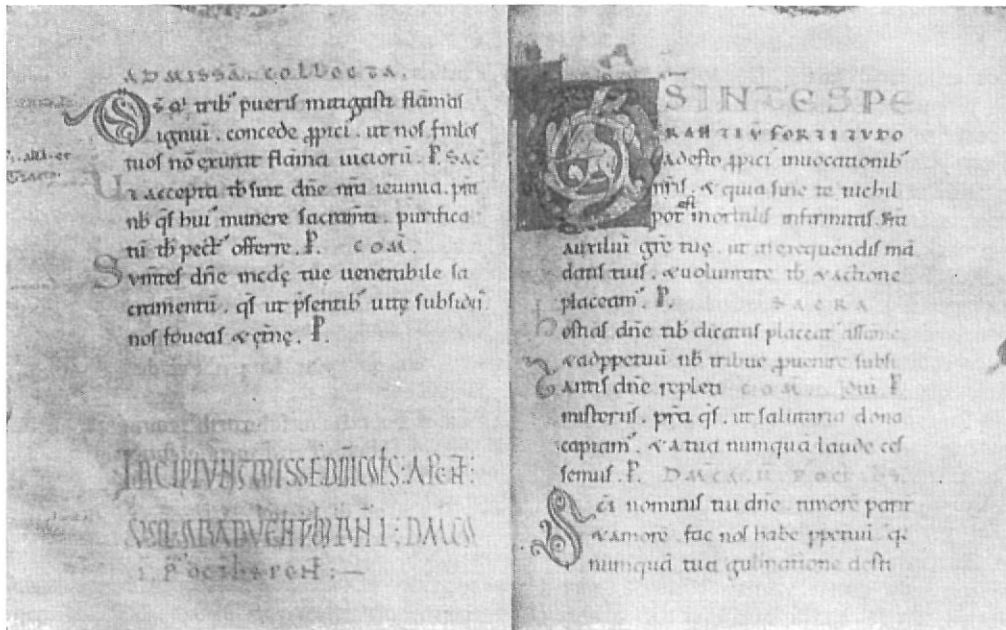 AD MISSĀ. COLLECTA.
DS̄ qͥ trib' pueris mitigasti flāmas
igniū. concede ꝓpici'. ut nos famlos
tuos nō exurat flāma uiciorū. P. SAC
Ut accepta tͥb sint dn̄e nr̄a ieiunia. pͬta
nb̄ qs̄ hui' munere sacramti. purifica
tū tͥb pect' offerre. P. COM̄.
Sumtes dn̄e mcdę tue uenerabile sa
cramentū. qs̄ ut p̄sentib' uitę subsidiī
nos foueas & etn̄ę. P.
INCIPIUNT MISSE DOMINICALES: A PENT:
USQ; AD ADVENTŪ DNI: DMCA
I. P' OCT. PENT:
DS IN TE SPE
RANTIŪ FORTITUDO
adesto ꝓpici' inuocationib'
nr̄is. & quia sine te nichil
pot' est mortalis infirmitas. pͬta
auxiliū grē tuę. ut in exequendis mā
datis tuis. & uoluntate tͥb & actione
placeam'. P. SACRA
Hostias dn̄e tͥb dicatas placeat' assume
& ad ppetuū nb̄ tribue ꝓuenire subsi
Tantis dn̄e repleti COM̄. diū. P
misteriis. pͬta qs̄. ut salutaria dona
capiam'. & a tua numquā laude ces
semus. P. DMCA. II. P' OCT.
Sci nominis tui dn̄e timorē parit
& amorē fac nos habe ppetuū. qͥ
numquā tua gubnatione desti